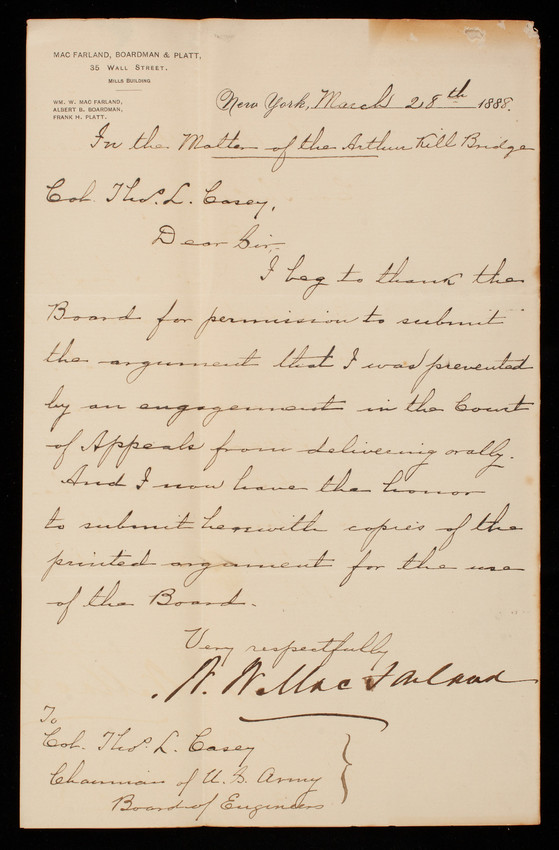 MAC FARLAND, BOARDMAN & PLATT,
35 WALL STREET.
MILLS BUILDING
WM. W. MAC FARLAND,
ALBERT B. BOARDMAN,
FRANK H. PLATT.
New York, March 28th 1888.
In the Matter of the Arthur Kill Bridge
Col. Thos. L. Casey,
Dear Sir,-
I beg to thank the
Board for permission to submit
the argument that I was prevented
by an engagement in the Court
of Appeals from delivering orally.
And I now have the honor
to submit herewith copies of the
printed argument for the use
of the Board.
Very respectfully
W. W. Mac Farland
To
Col. Thos. L. Casey
Chairman of U.S. Army
Board of Engineers